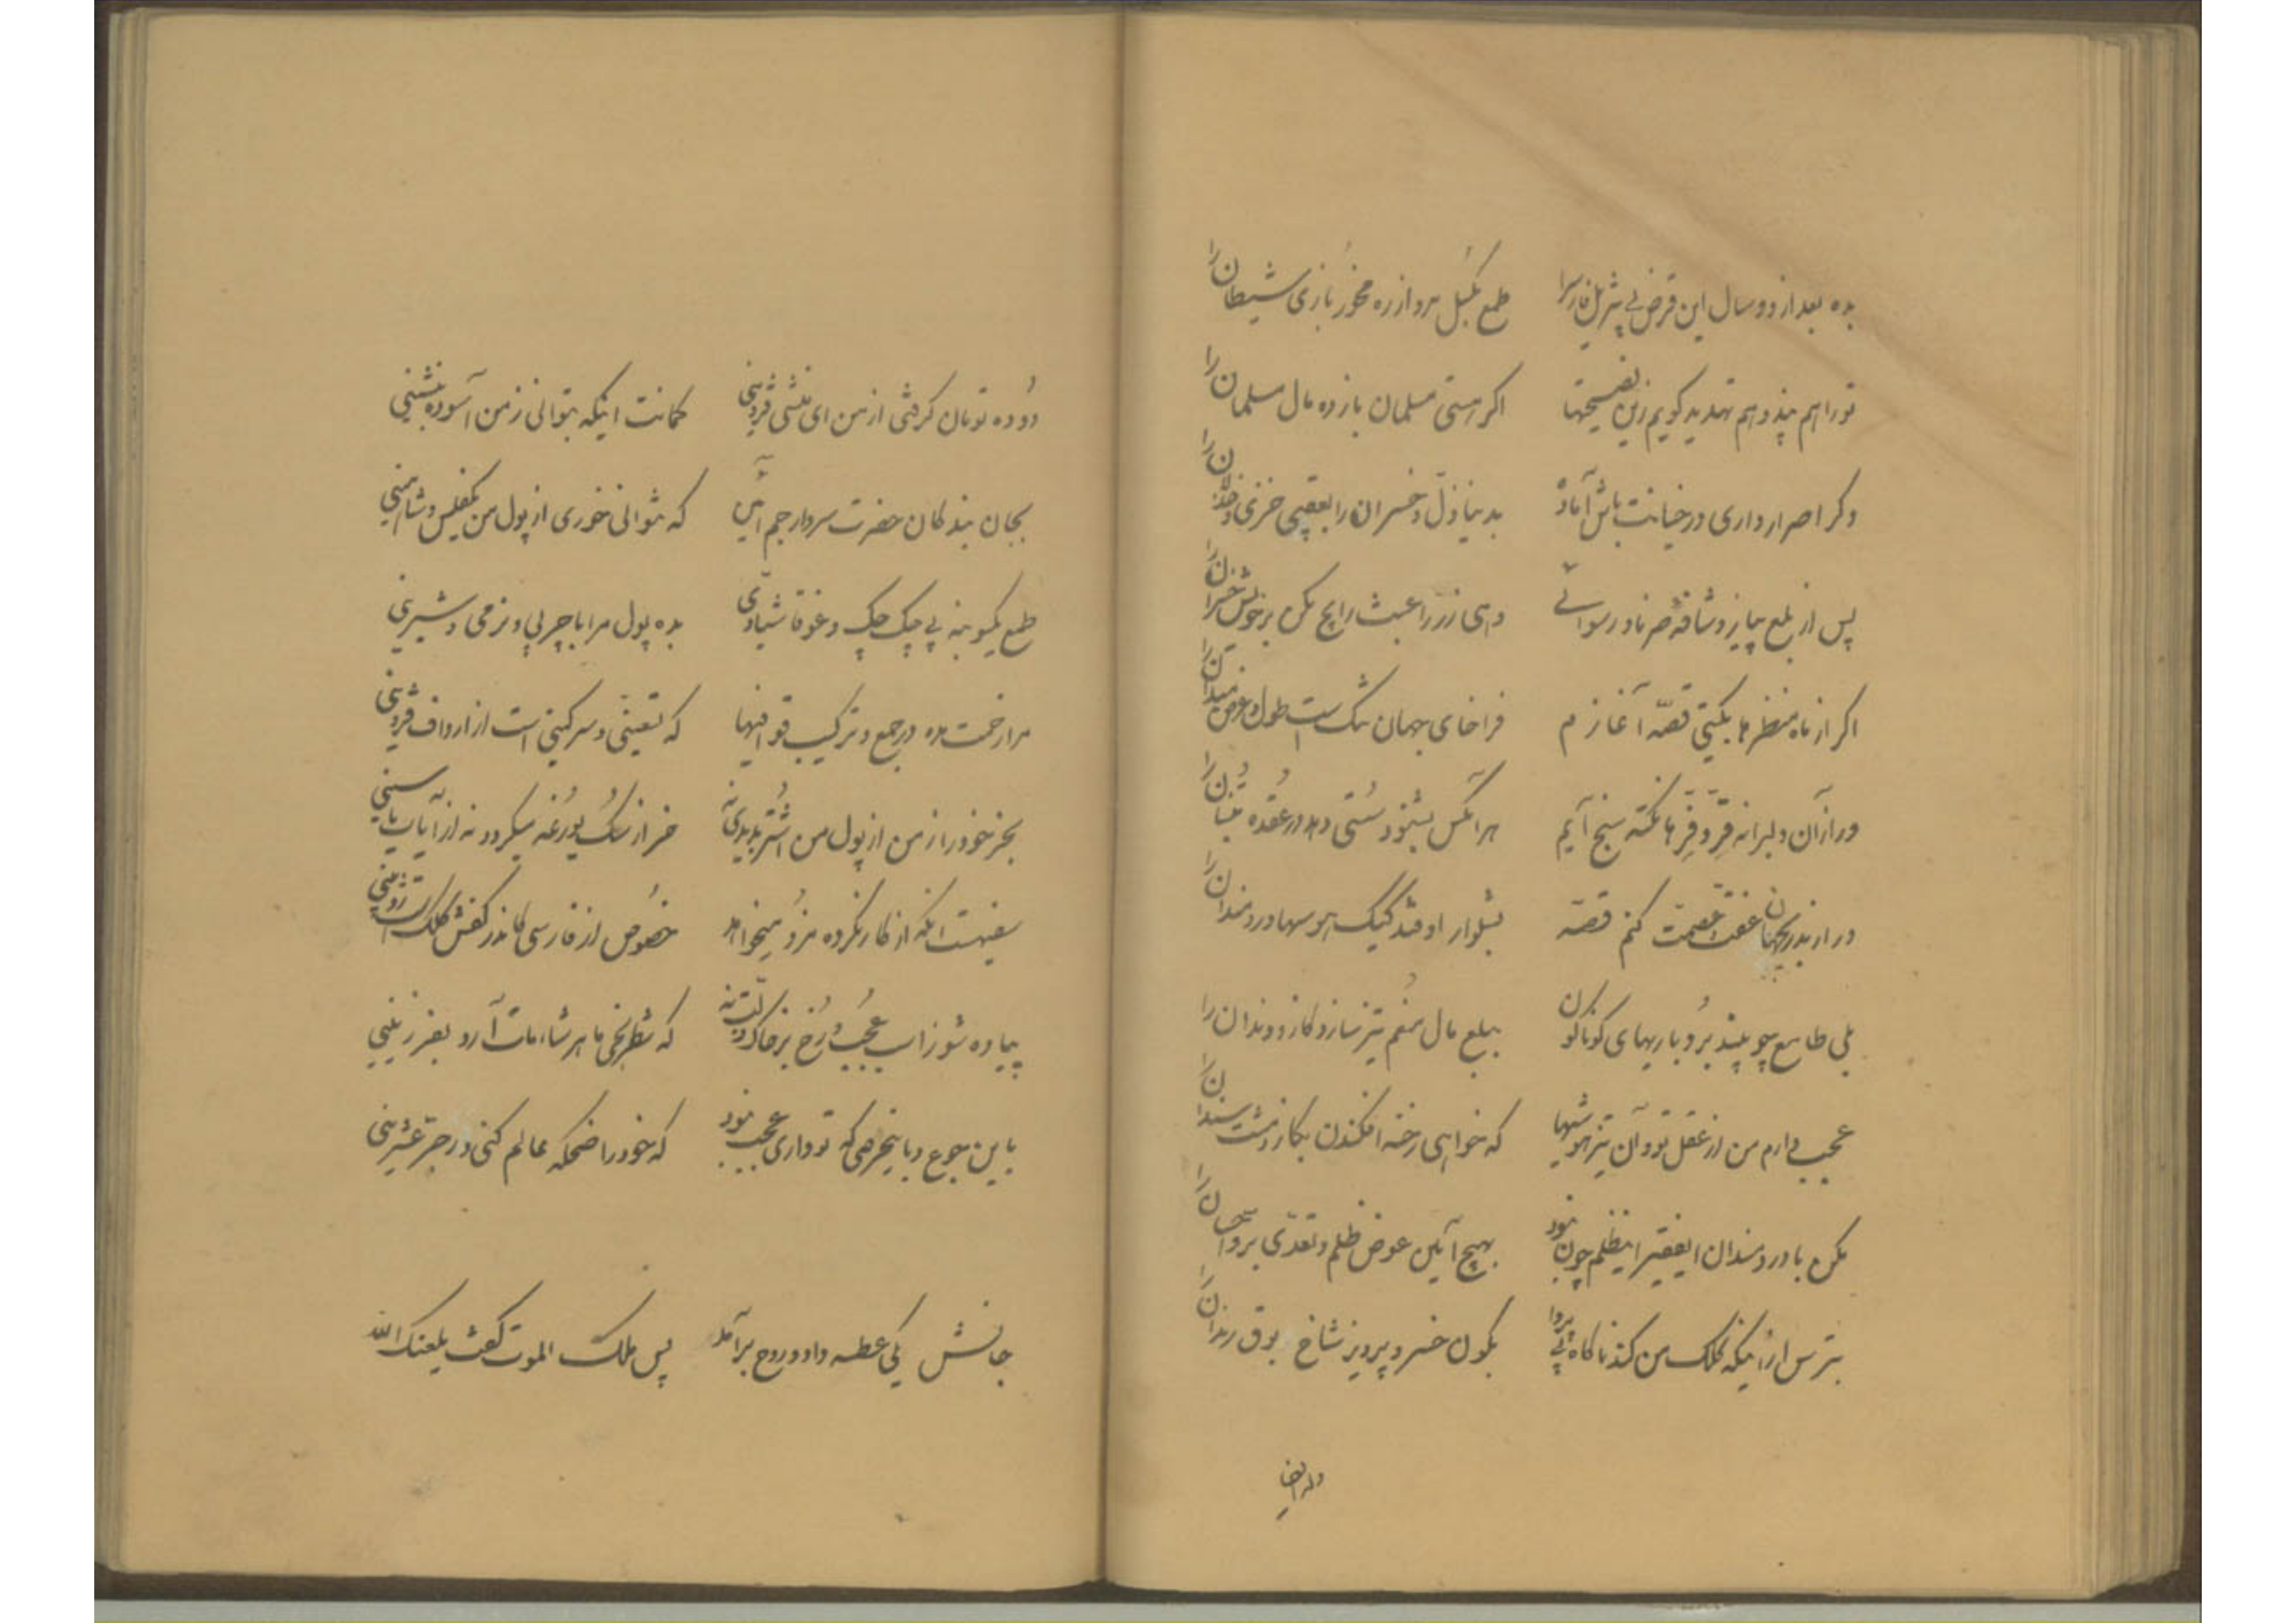 بده بعد از دو سال این قرض بی تنزیل فارس را طمع بگسل مرو از ره مخور بازی شیطان را
تو را هم پند و هم تهدید گویم زین نصیحتها اگر هستی مسلمان باز ده مال مسلمان را
وگر اصرار داری در خیانت باش آماده بدنیا ذل و خسران را بعقبی خزی و
پس از بلع پیاز و شافه صرنا و رسوائی دهی زر را عبث راهی مکن بر خویش خسران را
اگر از ماه منظرها بگیتی قصه آغازم فراخای جهان تنگ است طول و عرض میدان را
ور از آن دلبرانه قر و فرها نکته سنج آیم هر آنکس بشنود سستی دهد در عقده تنبان را
ور از عفت عصمت کنم قصه بشلوار اوفتد کیک هوسها دردمندان را
بلی طامع چو بیند بردباریهای گوناگون ببلع مال منعم تیز سازد گاز و دندان را
عجب دارم من از عقل تو و آن تیزهوشیها که خواهی رخنه افکندن بکار زشت سندان را
مکن با دردمندان ایفقیر اینظلم چون نبود بهیچ آئین عوض ظلم و تعدی بر وا را
بترس از اینکه کلک من کند ناگاه بی پروا بکون خسرو پرویز شاخ بوق رندان را
وله ایضا
دو ده تومان گرفتی از من ای منشی قزوینی گمانت اینکه بتوانی ز من آسوده بنشینی
بجان بندگان حضرت سردار جم آئین که نتوانی خوری از پول من یکفلس و شاهینی
طمع یکسو بنه بی چک چک و غوغا شیادی بده پول مرا با چربی و نرمی و شیرینی
مرا رخصت بده در جمع و ترکیب قوافیها که تسعینی و سرگینی است از ارداف قزوینی
بجز خود را ز من از پول من اشتر بدیدی نه خر از سک یورغه میگردد نه از آیات یاسینی
سفیهست آنکه از کار نکرده مزد میخواهد خصوص از فارسی کاندر کفش کلک است زوبینی
پیاده شو ز اسب عجب و رخ بر خاک که شطرنجی ماهر شاه مات آرد بفرزینی
باین جوع و باینحرصی که تو داری عجب نبود که خود را ضحکه عالم کنی در جر عشرینی
جانش یکی عطسه داد و روح برآمد پس ملک الموت گفت یلعنک الله